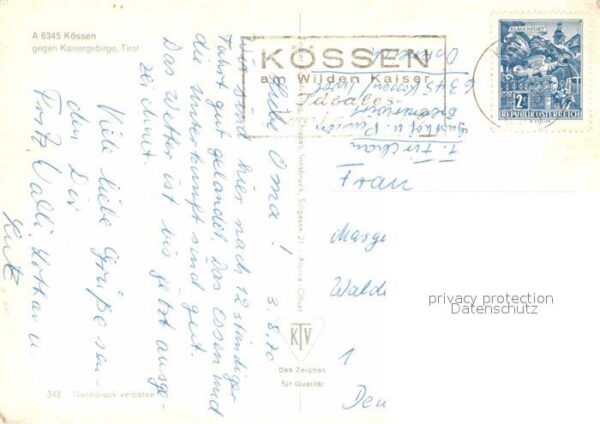 A 6345 Kössen
gegen Kaisergebirge, Tirol
KÖSSEN
am Wilden Kaiser
KLAGENFURT
2 S
REPUBLIK ÖSTERREICH
3.8.70
Liebe Oma!
Wir sind hier nach 12 ständiger
Fahrt gut gelandet. Das Essen und
die Unterkunft sind gut.
Das Wetter ist bis jetzt ausge-
zeichnet.
Viele liebe Grüße sen-
den Dir
Fritz, Walli, Lothar u.
Gasthof u. Pension
6345 Kössen / Tirol
Frau
Marga
Wald
1
Deu
Innsbruck, Sillgasse 21
Alpina-Offset
KTV
Das Zeichen
für Qualität
343 Nachdruck verboten
privacy protection
Datenschutz